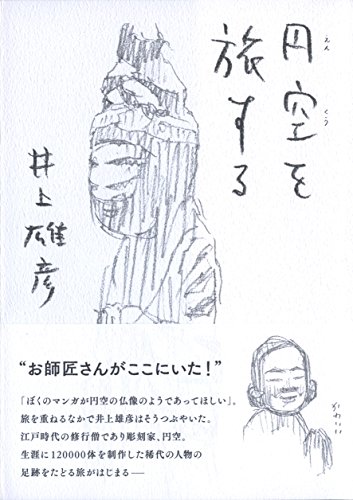 円空を
旅する
井上雄彦
えんくう
“お師匠さんがここにいた!”
「ぼくのマンガが円空の仏像のようであってほしい」。
旅を重ねるなかで井上雄彦はそうつぶやいた。
江戸時代の修行僧であり彫刻家、円空。
生涯に120000体を制作した稀代の人物の
足跡をたどる旅がはじまる──
かわいい